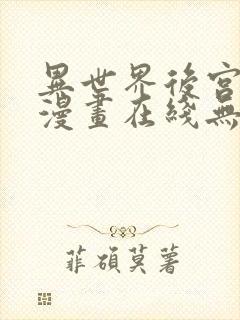 異世界後宮
漫畫在綫無
菲碩莫著